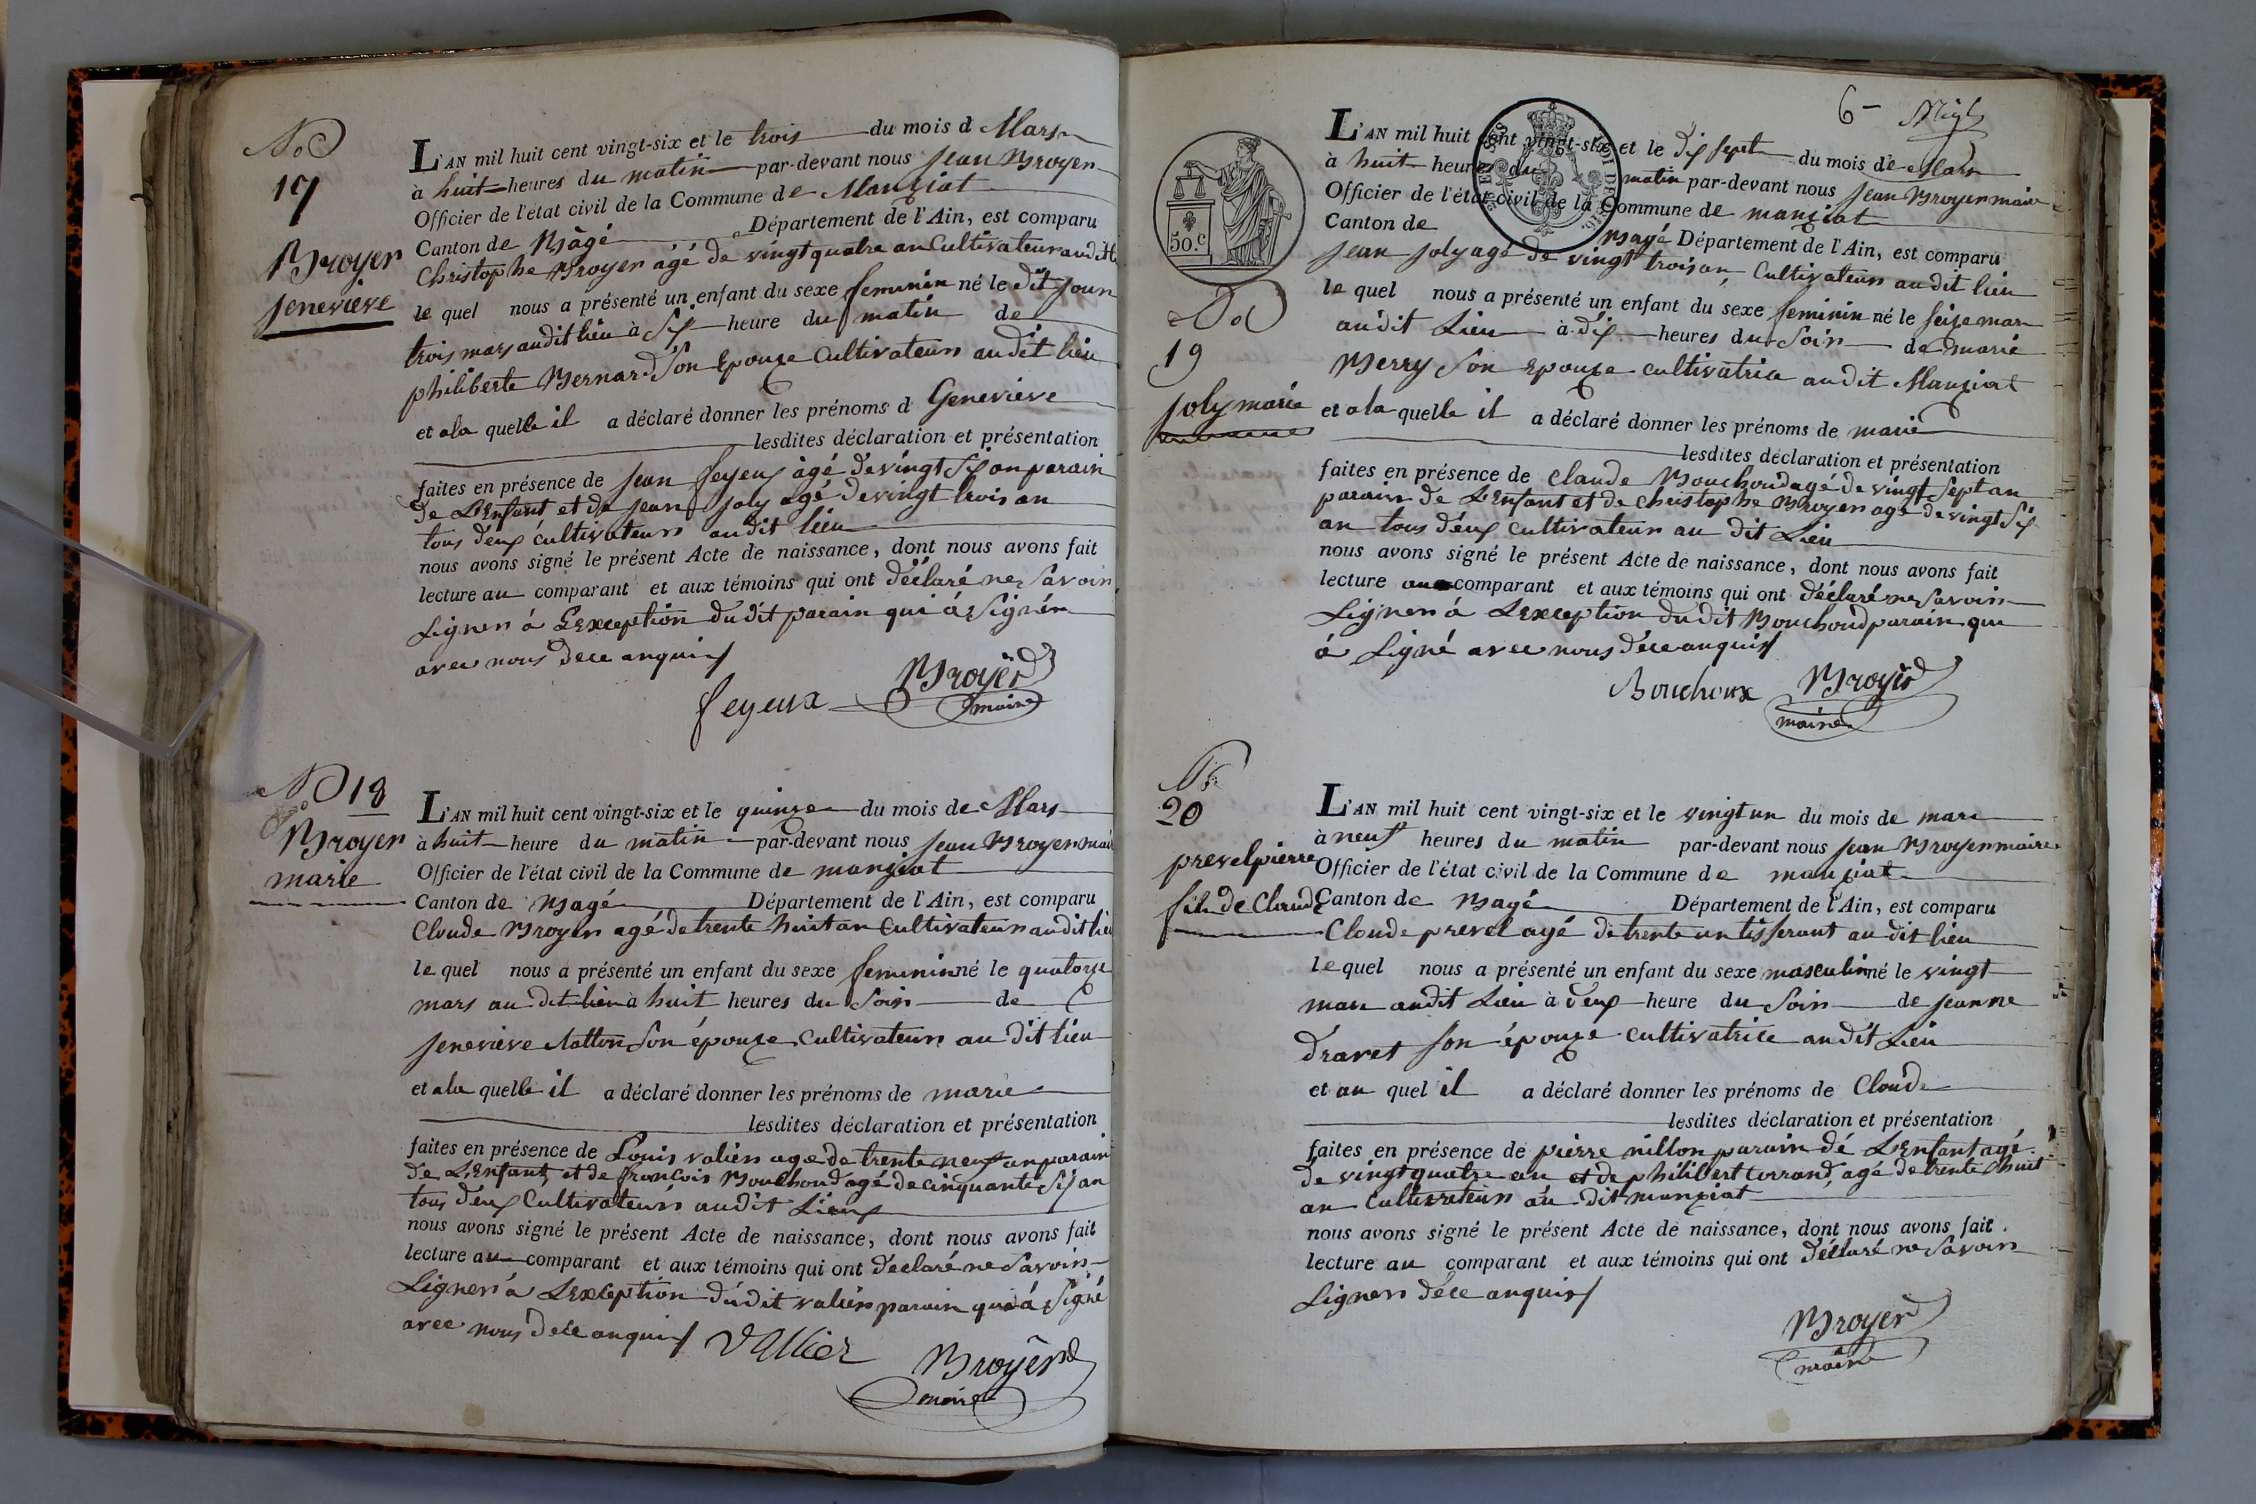 No
17
Broyer
jeneviève
L'AN mil huit cent vingt-six et le trois du mois d Mars
à huit heures du matin par-devant nous jean Broyer
Officier de l'état civil de la Commune de Manziat
Canton de Bâgé Département de l'Ain, est comparu
Christophe Broyer âgé de vingt quatre an Cultivateur audit
le quel nous a présenté un enfant du sexe feminin né le dit jour
trois mars audit lieu à six heure du matin de
philiberte Bernard son Epouze Cultivateur audit lieu
et a la quelle il a déclaré donner les prénoms d Geneviève
lesdites déclaration et présentation
faites en présence de jean feyeux âgé de vingt six an parain
de L'Enfant et de jean joly agé de vingt trois an
tous deux cultivateurs audit lieu
nous avons signé le présent Acte de naissance, dont nous avons fait
lecture au comparant et aux témoins qui ont déclaré ne savoir
signer à L'exception dudit parain qui à signer
avec nous dece anquis
feyeux Broyer
maire
No 18
Broyer
marie
L'AN mil huit cent vingt-six et le quinze du mois de Mars
à huit heure du matin par-devant nous jean Broyer mair
Officier de l'état civil de la Commune de manziat
Canton de Bagé Département de l'Ain, est comparu
Cloude Broyer agé de trente huit an Cultivateur audit lieu
le quel nous a présenté un enfant du sexe feminin né le quatorze
mars au dit lieu à huit heures du soir de
jeneviève Natton son épouze Cultivateur au dit lieu
et a la quelle il a déclaré donner les prénoms de marie
lesdites déclaration et présentation
faites en présence de Louis valier age de trente neuf an parain
de L'Enfant et de francois Bouchoud agé de cinquante six an
tous deux Cultivateurs audit Lieux
nous avons signé le présent Acte de naissance, dont nous avons fait
lecture au comparant et aux témoins qui ont déclaré ne savoir
signer à L'exception dudit valier parain qui à signé
avec nous dece anquis Vallier
Broyer
maire
6
50.c
No
19
joly marie
L'AN mil huit cent vingt-six et le dix sept du mois de Mars
à huit heures du matin par-devant nous jean Broyer maire
Officier de l'état civil de la Commune de manziat
Canton de Bagé Département de l'Ain, est comparu
jean joly agé de vingt trois an Cultivateur audit lieu
le quel nous a présenté un enfant du sexe feminin né le seize mar
audit Lieu à dix heures du soir de marie
Merry son Epouze cultivatrice audit Manziat
et a la quelle il a déclaré donner les prénoms de marie
lesdites déclaration et présentation
faites en présence de claude Bouchoud agé de vingt sept an
parain de L'Enfant et de christophe Broyer agé de vingt six
an tous deux cultivateur au dit Lieu
nous avons signé le présent Acte de naissance, dont nous avons fait
lecture au comparant et aux témoins qui ont déclaré ne savoir
signer à L'exception dudit Bouchoud parain qui
à signé avec nous dece anquis
Bouchoux Broyer
maire
No
20
prevel pierre
fils de Cloude
L'AN mil huit cent vingt-six et le vingt un du mois de mars
à neuf heures du matin par-devant nous jean Broyer maire
Officier de l'état civil de la Commune de manziat
Canton de Bagé Département de l'Ain, est comparu
Cloude prevel agé de trente un tisserant au dit lieu
le quel nous a présenté un enfant du sexe masculin né le vingt
mars audit Lieu à deux heure du soir de jeanne
dravet son épouze cultivatrice audit Lieu
et au quel il a déclaré donner les prénoms de Cloude
lesdites déclaration et présentation
faites en présence de pierre nillon parain de L'Enfant agé
de vingt quatre an et de philibert corrand, agé de trente huit
an Cultivateurs au dit manziat
nous avons signé le présent Acte de naissance, dont nous avons fait
lecture au comparant et aux témoins qui ont déclaré ne savoir
signer dece anquis
Broyer
maire